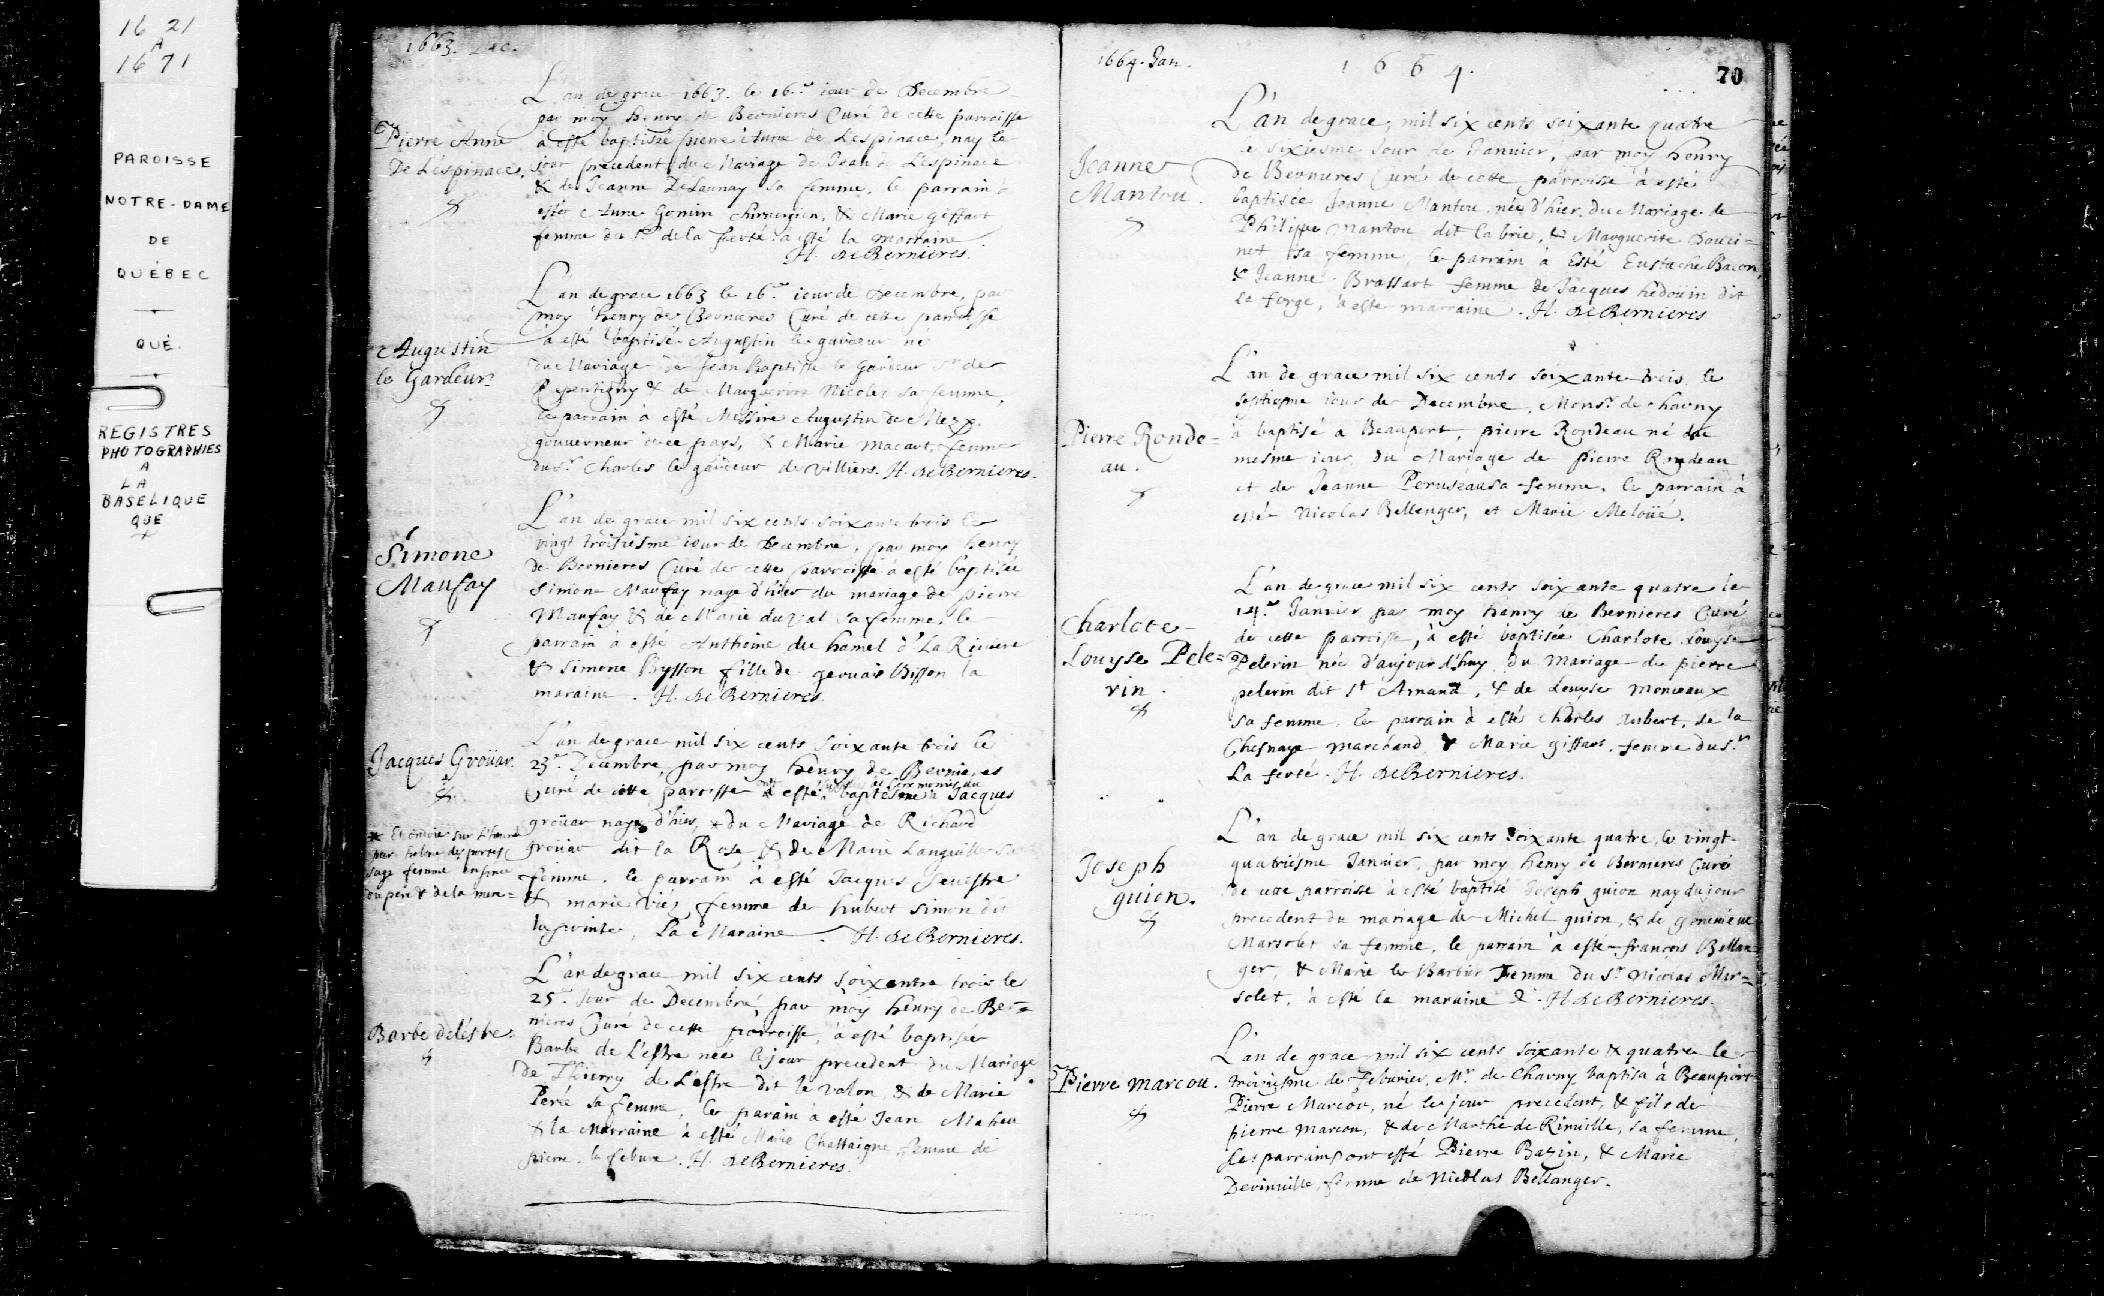 16 21
A
16 71
PAROISSE
NOTRE-DAME
DE
QUÉBEC
QUÉ.
REGISTRES
PHOTOGRAPHIES
A
LA
BASELIQUE
QUE
1663. Dec.
L'an de grace 1663. le 16.e iour de Decembre
par moy Henry de Bernieres Curé de cette parroisse
Pierre Anne
De Léspinace.
à esté baptisé pierre Anne de Lespinace, nay le
jour precedent du Mariage de Jean de Lespinace
& de Jeanne DeLaunay sa femme. le parrain à
esté Anne Gomin chirurgien, & Marie giffart
femme du Sr de la ferté à esté la marraine
H. de Bernieres.
L'an de grace 1663 le 16.e iour de Decembre, par
moy henry de Bernieres Curé de cette parroisse
Augustin
le Gardeur
à esté baptisé Augustin le gardeur né
du Mariage de Jean Baptiste le Gardeur Sr de
Repentigny & de Marguerite Nicolet sa femme,
le parrain à esté Messire Augustin de Mezy
gouverneur de ce pays, & Marie macart femme
du Sr Charles le gardeur de Villiers. H. de Bernieres.
Simone
Maufay
L'an de grace mil six cents soixante trois le
vingt troisiesme iour de Decembre, par moy henry
de Bernieres Curé de cette parroisse à esté baptisée
Simone Maufay naye d'hier du mariage de pierre
Maufay & de Marie duval sa femme. le
parrain à esté Anthoine du hamel dt La Riviere
& Simone Bysson fille de gervais Bisson la
maraine. H. de Bernieres.
Jacques Groüar.
L'an de grace mil six cents soixante trois le
23.e Decembre, par moy henry de Bernieres
Curé de cette parroisse esté ceremonies du baptesme à Jacques
groüar naye d'hier, * du Mariage de Richard
groüar dit la Rose & de Marie Languille sa
femme. le parrain à esté Jacques fenestre
& marie viés femme de hubert Simon dit
la pointe, La Maraine. H. de Bernieres.
* Et
sage femme
du pere & de la mere
Barbe delestre.
L'an de grace mil six cents soixante trois le
25.e Jour de Decembre, par moy henry de Ber=
nieres Curé de cette parroisse, à esté baptisée
Barbe de L'estre née le jour precedent du Mariage
de Thierry de L'estre dit le valon, & de Marie
Peré sa femme, le parain a esté Jean Maheu
& la Marraine à esté Marie Chastaigne femme de
pierre le febure. H. de Bernieres.
1664. Jan.
1664.
70
Jeanne
Mantou.
L'an de grace, mil six cents soixante quatre
le sixiesme Jour de Janvier, par moy henry
de Bernieres Curé de cette parroisse à esté
baptisée Jeanne Mantou, née d'hier, du Mariage de
Philippe mantou dit la brie, & Marguerite Douci=
net sa femme, le parrain à Esté Eustache Bacon,
& Jeanne Brassart femme de Jacques hedoüin dit
la forge, à esté marraine. H. de Bernieres
Pierre Ronde=
au.
L'an de grace mil six cents soixante trois le
septiesme iour de Decembre, Monsr de charny
à baptisé a Beauport, pierre Rondeau né du
mesme iour, du Mariage de pierre Rondeau
et de Jeanne Peruseau sa femme. le parrain à
esté Nicolas Bellenger, et Marie Meloüe.
Charlote
Louyse Pele=
rin.
L'an de grace mil six cents soixante quatre le
14.e Janvier par moy henry de Bernieres Curé
de cette parroisse, à esté baptisée Charlote Louyse
Pelerin née d'aujourd'huy du Mariage de pierre
pelerin dit St Amand, & de Louyse monceaux
sa femme. le parrain à esté Charles Aubert, de la
Chesnaye marchand & Marie giffart, femme du Sr
La ferté. H. de Bernieres.
Joseph
guion.
L'an de grace mil six cents Soixante quatre, le vingt
quatriesme Janvier, par moy henry de Bernieres Curé
de cette parroisse à esté baptisé Joseph guion nay du jour
precedent du mariage de Michel guion, & de genevieve
Marsolet sa femme, le parrain à esté françois Bellan=
ger, & Marie le Barbier femme du Sr Nicolas Mar=
solet, à esté la maraine &. H. de Bernieres.
Pierre marcou.
L'an de grace mil six cents soixante & quatre le
troisiesme de feburier, Mr. de Charny baptisa à Beauport
Pierre Marcou, né le jour precedent, & fils de
pierre marcou, & de Marthe de Rinville, sa femme,
les parrains ont esté Pierre Bazin, & Marie
Derinville, femme de Nicolas Bellanger.